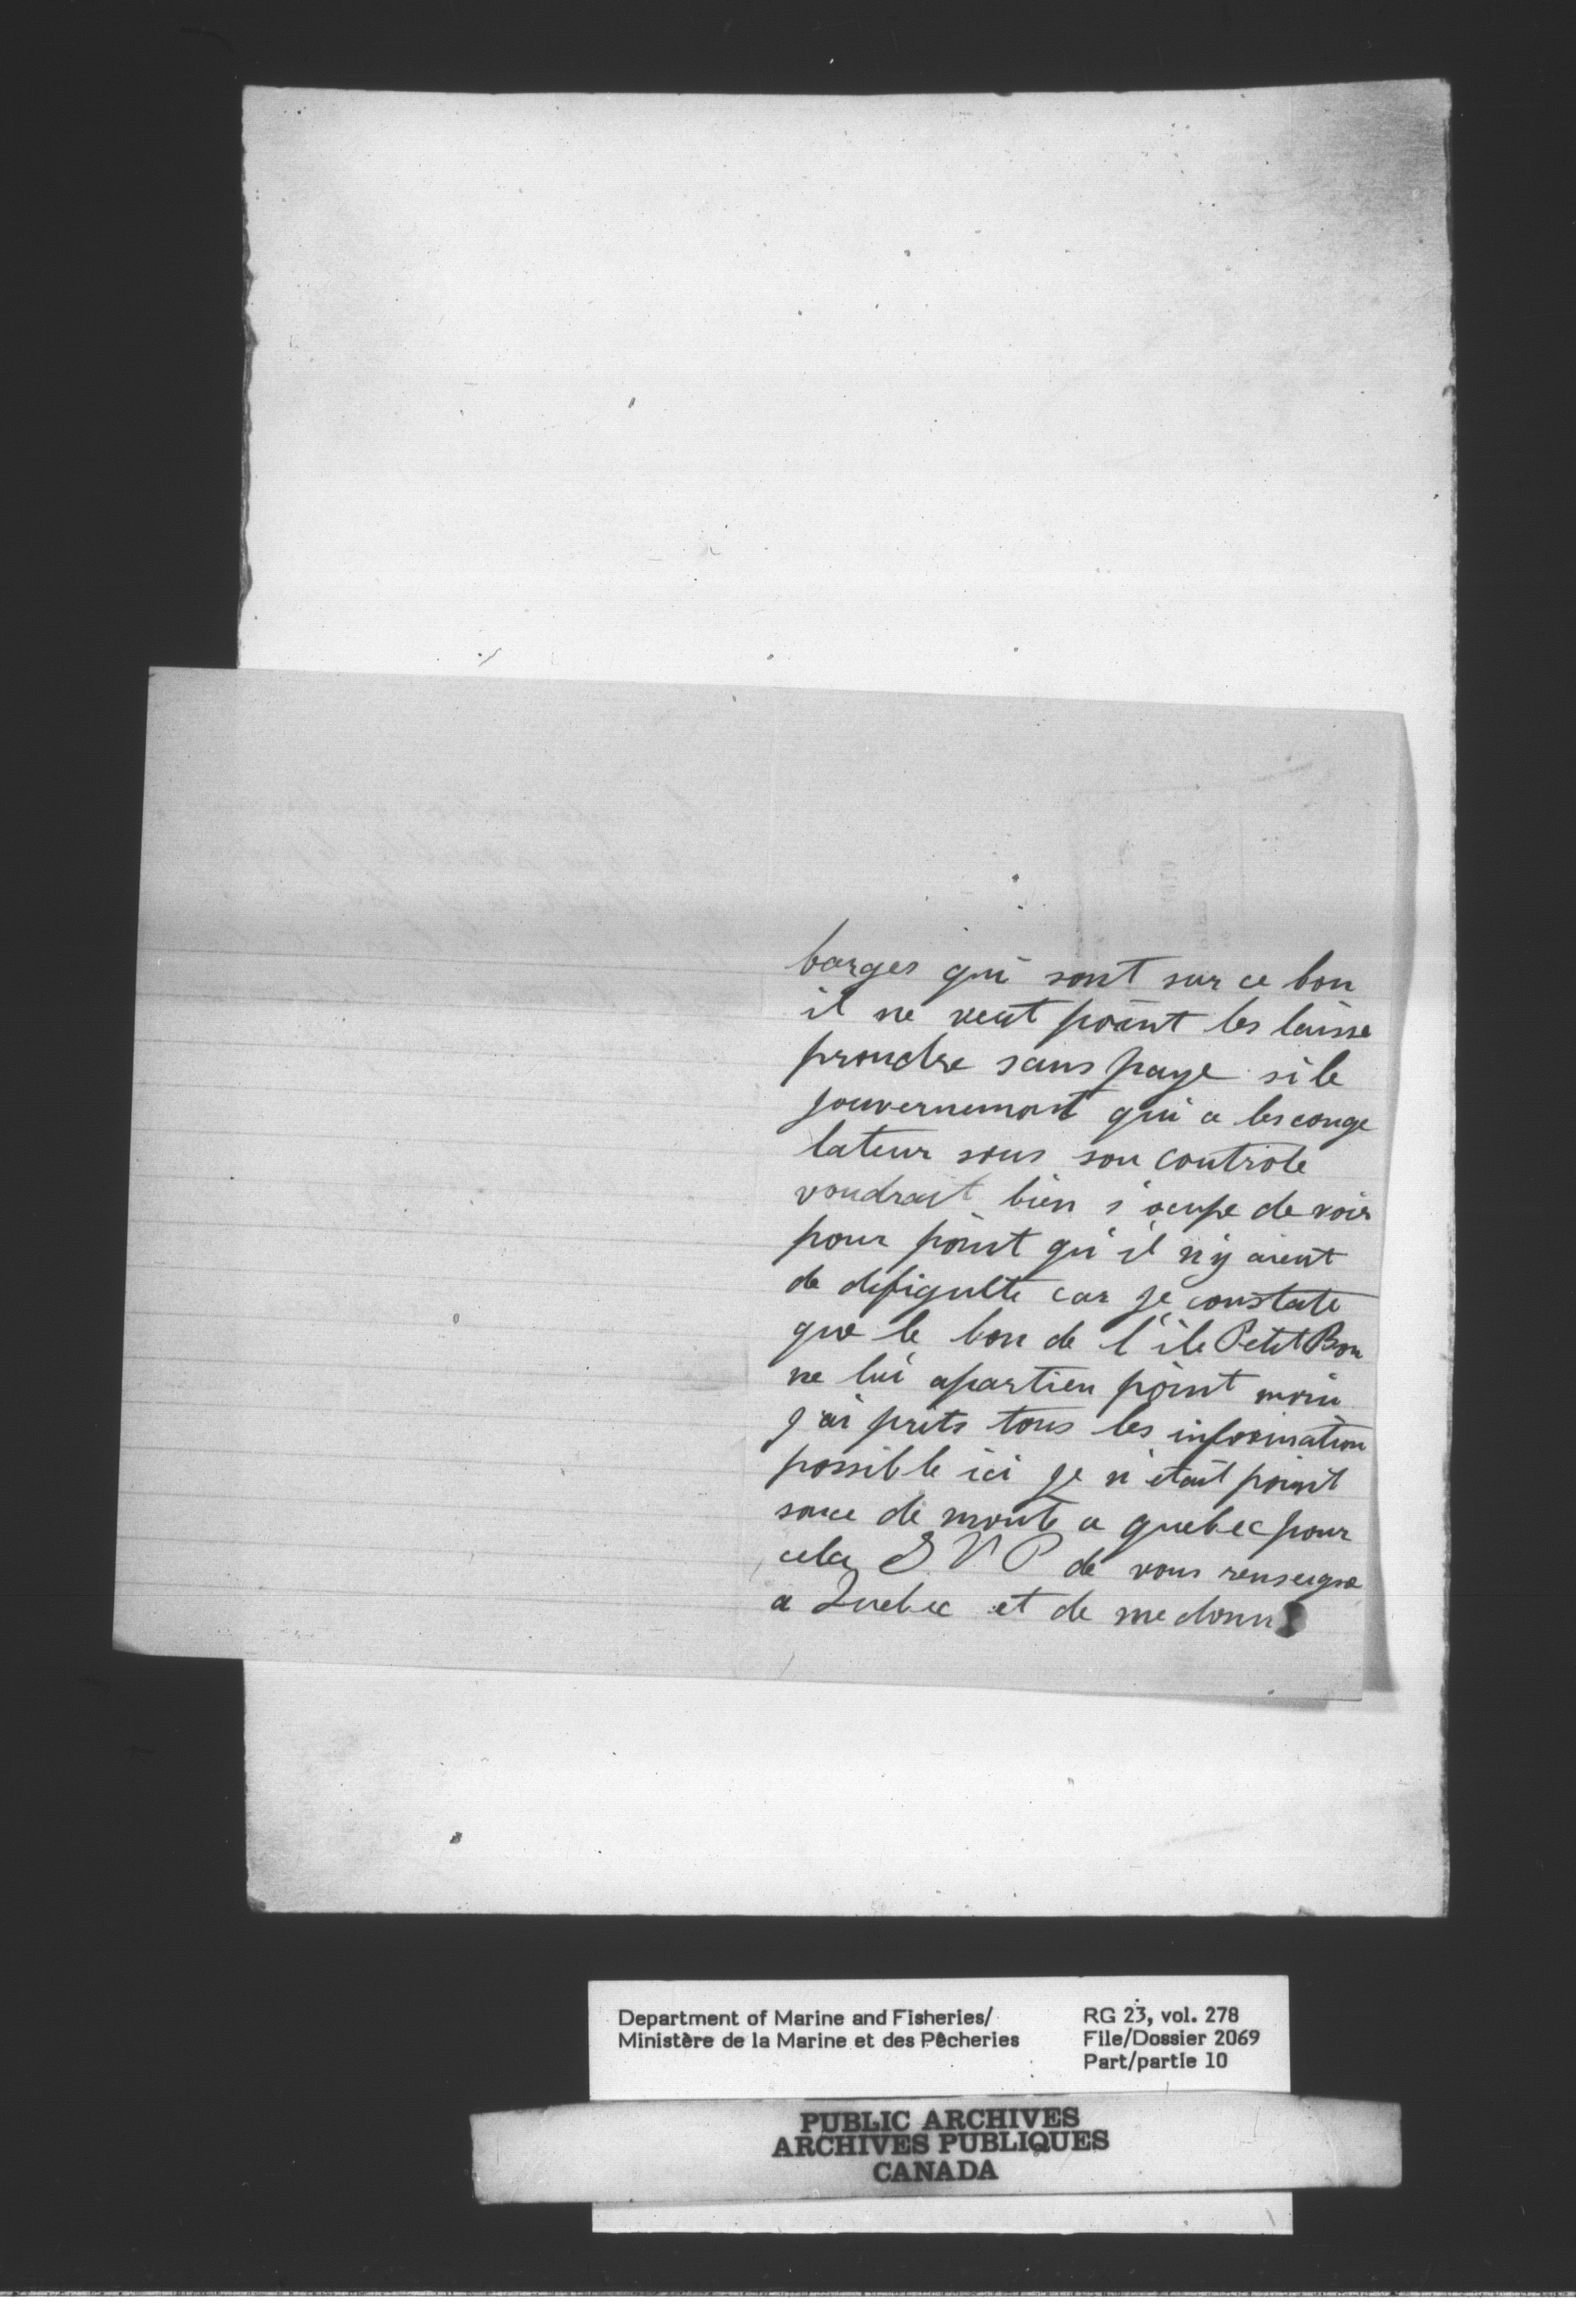 barges qui sont sur ce bon
il ne veut point les laisse
prendre sans paye si le
gouvernement qui a les conge
lateur sous son controle
voudrait bien s'ocupe de voir
pour point qu'il n'y aient
de defigulte car je constate
que le bon de l'ile Petit Bon
ne lui apartien point moin
j'ai prits tous les information
possible ici je n'etait point
souce de monte a quebec pour
cela S.V.P de vous renseigne
a Quebec et de me donn
Department of Marine and Fisheries/
Ministère de la Marine et des Pêcheries
RG 23, vol. 278
File/Dossier 2069
Part/partie 10
PUBLIC ARCHIVES
ARCHIVES PUBLIQUES
CANADA